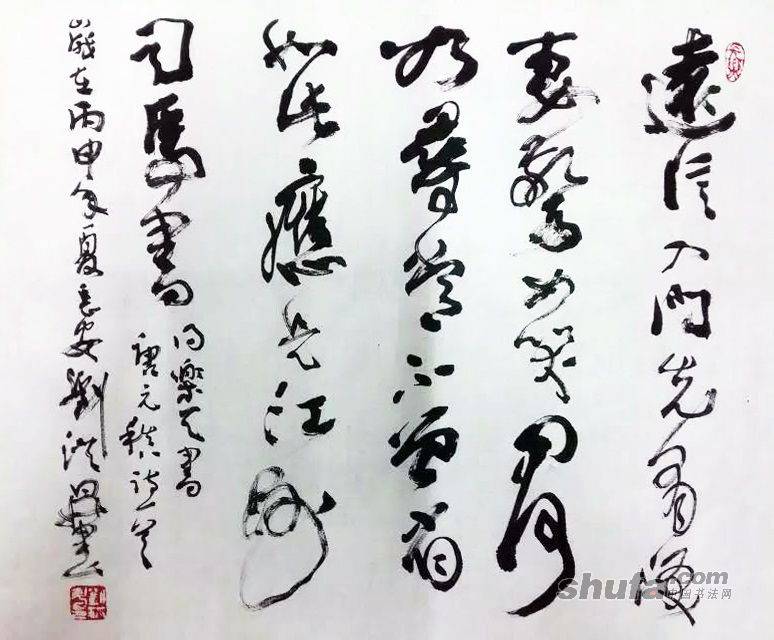 遠信入門先有淚
妻驚女哭問何
如尋常不曾省
如此應是江州
司馬書
得樂天書
唐元稹詩一首
歲在丙申年夏安劉洪書
shufa.com
中国书法网